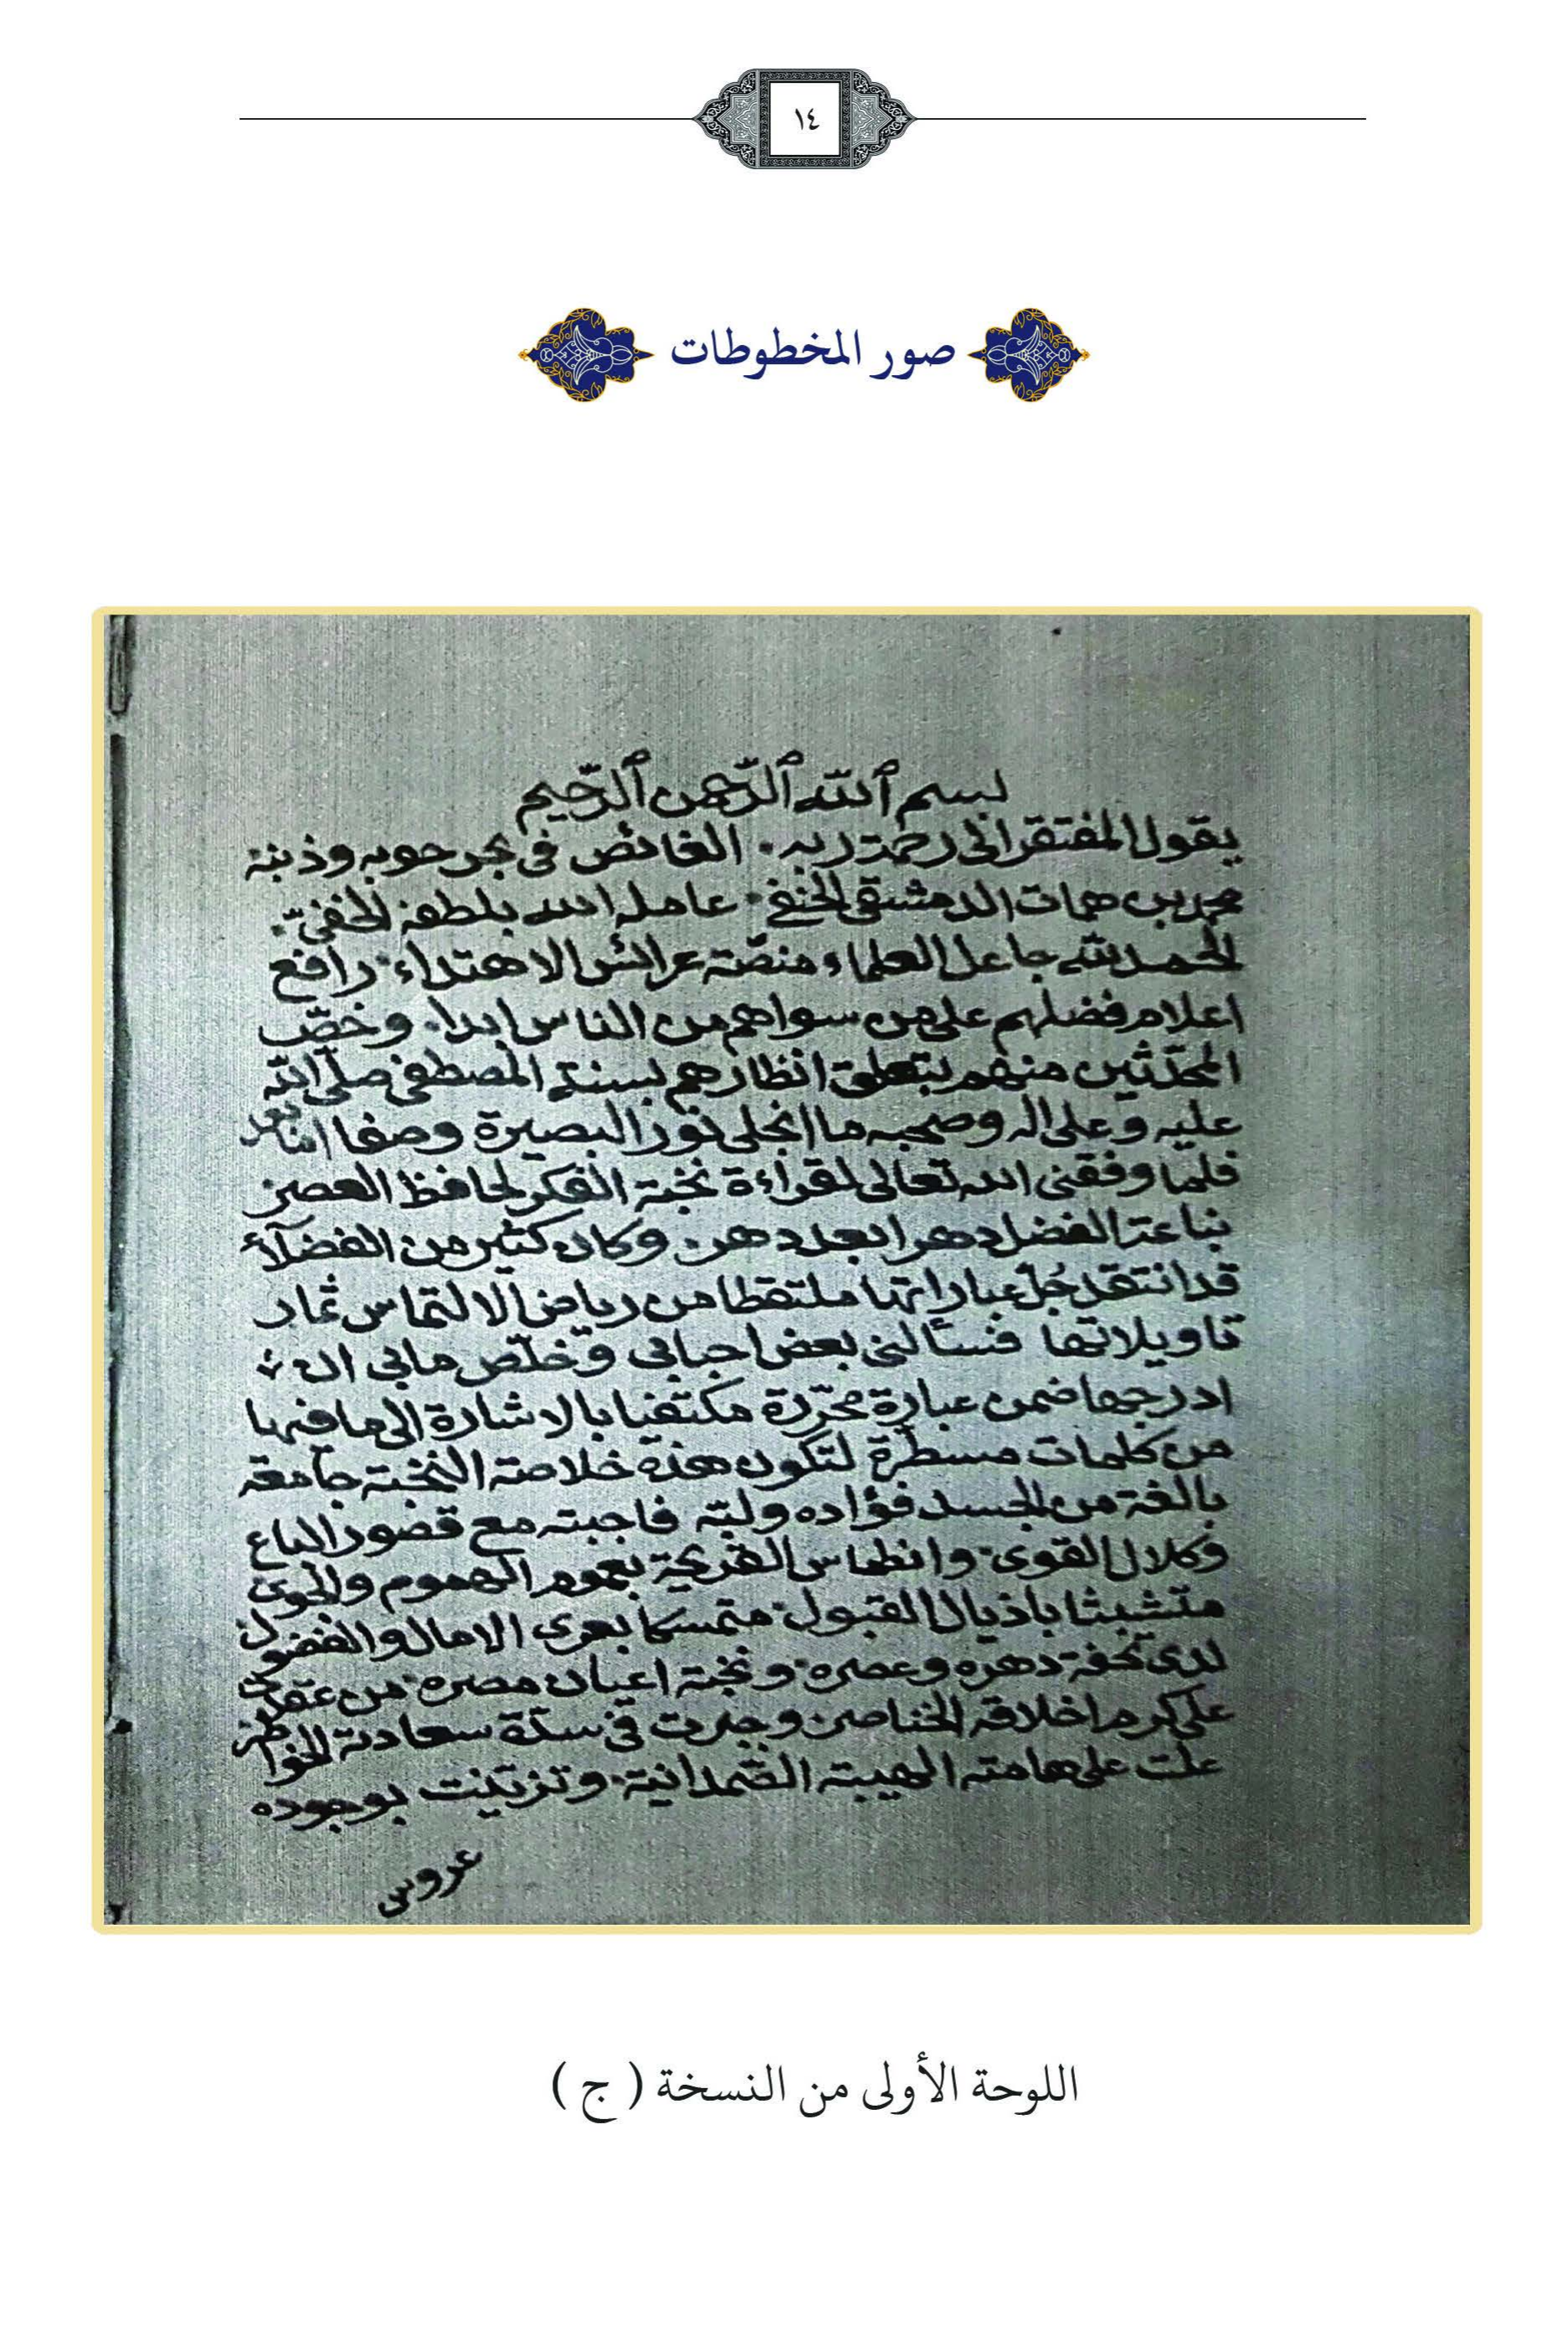 ١٤
صور المخطوطات
بسم ٱلله ٱلرّحمن ٱلرّحيم
يقول المفتقر الى رحمة ربه. الغائص فى بحر حوبه وذنبه
محمد بن همات الدمشقى الحنفى. عامله الله بلطفه الخفىّ.
الحمد لله جاعل العلماء منصّة عرائس الاهتداء. رافع
اعلام فضلهم على من سواهم من الناس ابدا. وخصّ
المحدّثين منهم بتعلق انظارهم بسنة المصطفى صلى الله
عليه وعلى اله وصحبه ما انجلى نور البصيرة وصفا اما بعد
فلما وفقنى الله تعالى لقراءة نخبة الفكر لحافظ العصر
الفضل دهرا بعد دهر. وكان كثير من الفضلاء
قد انتقد جُلّ عباراتها ملتقطا من رياض الالتماس ثمار
تاويلاتها فسألنى بعض احبابى وخلّص مابى ان
ادرجها ضمن عبارة محرّرة مكتفيا بالاشارة الى ما فيها
من كلمات مسطّرة لتكون هذه خلاصة النخبة جامعة
بالغة من الجسد فؤاده ولبّه فاجبته مع قصور الباع
وكلال القوى. وانطماس القريحة بعموم الهموم والجوى
متشبثا باذيال القبول. متمسكا بعرى الامال والفضول
لدى تحفة دهره وعصره. ونخبة اعيان مصره. من عقدت
على كرم اخلاقه الخناصر. وجرت فى سدّة سعادته الخواطر
علت على هامته الهيبة الصّمدانية. وتزيّنت بوجوده
عروس
اللوحة الأولى من النسخة ( ج )